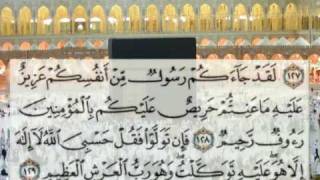 ١٢٧ لَقَدْ جَآءَكُمْ رَسُولٌ مِّنْ أَنفُسِكُمْ عَزِيزٌ
عَلَيْهِ مَا عَنِتُّمْ حَرِيصٌ عَلَيْكُم بِالْمُؤْمِنِينَ
رَءُوفٌ رَّحِيمٌ ١٢٨ فَإِن تَوَلَّوْا فَقُلْ حَسْبِيَ اللَّهُ لَآ إِلَٰهَ
إِلَّا هُوَ عَلَيْهِ تَوَكَّلْتُ وَهُوَ رَبُّ الْعَرْشِ الْعَظِيمِ ١٢٩